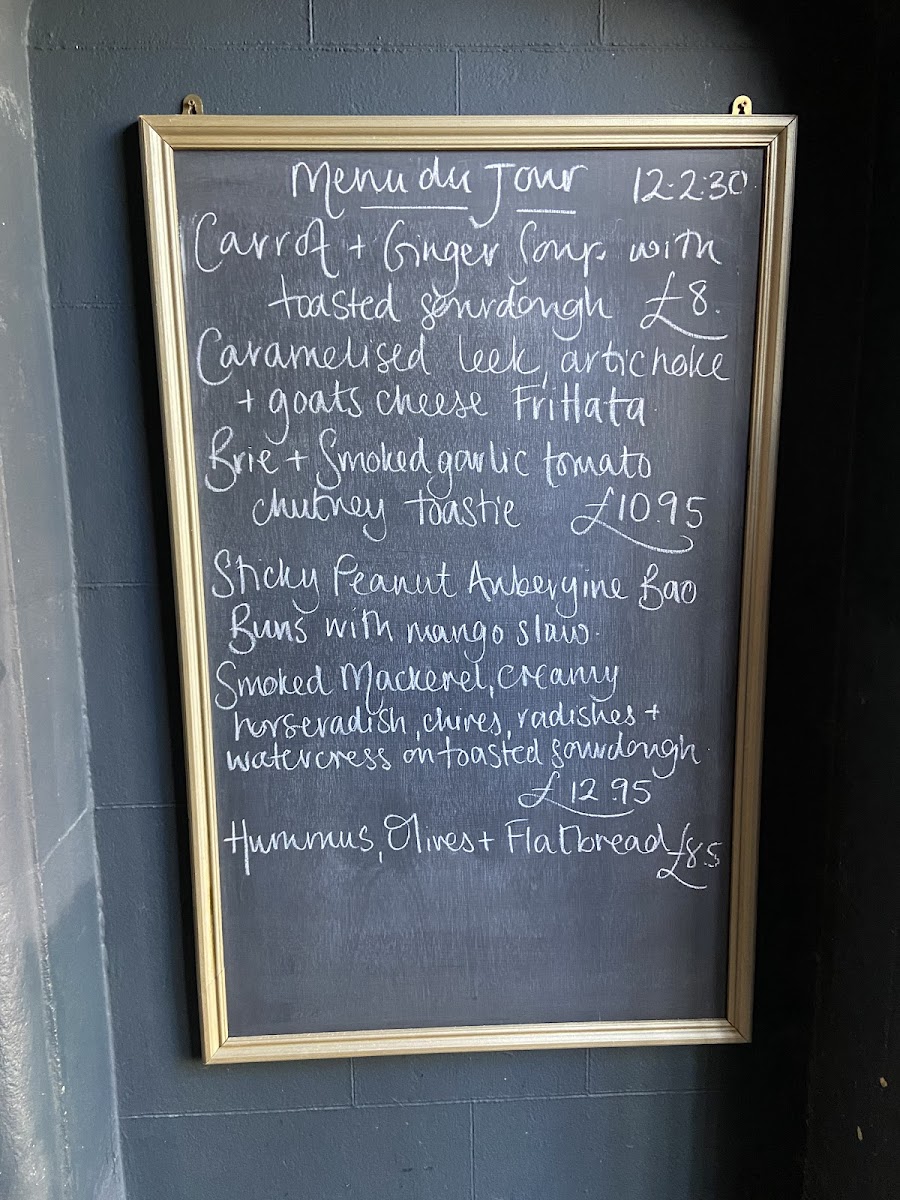 Menu du Jour 12:2:30
Carrot + Ginger Soup with
toasted sourdough £8.
Caramelised leek, artichoke
+ goats cheese Frittata
Brie + Smoked garlic tomato
chutney toastie £10.95
Sticky Peanut Aubergine Bao
Buns with mango slaw.
Smoked Mackerel, creamy
horseradish, chives, radishes +
watercress on toasted sourdough
£12.95
Hummus, Olives + Flatbread £8.5